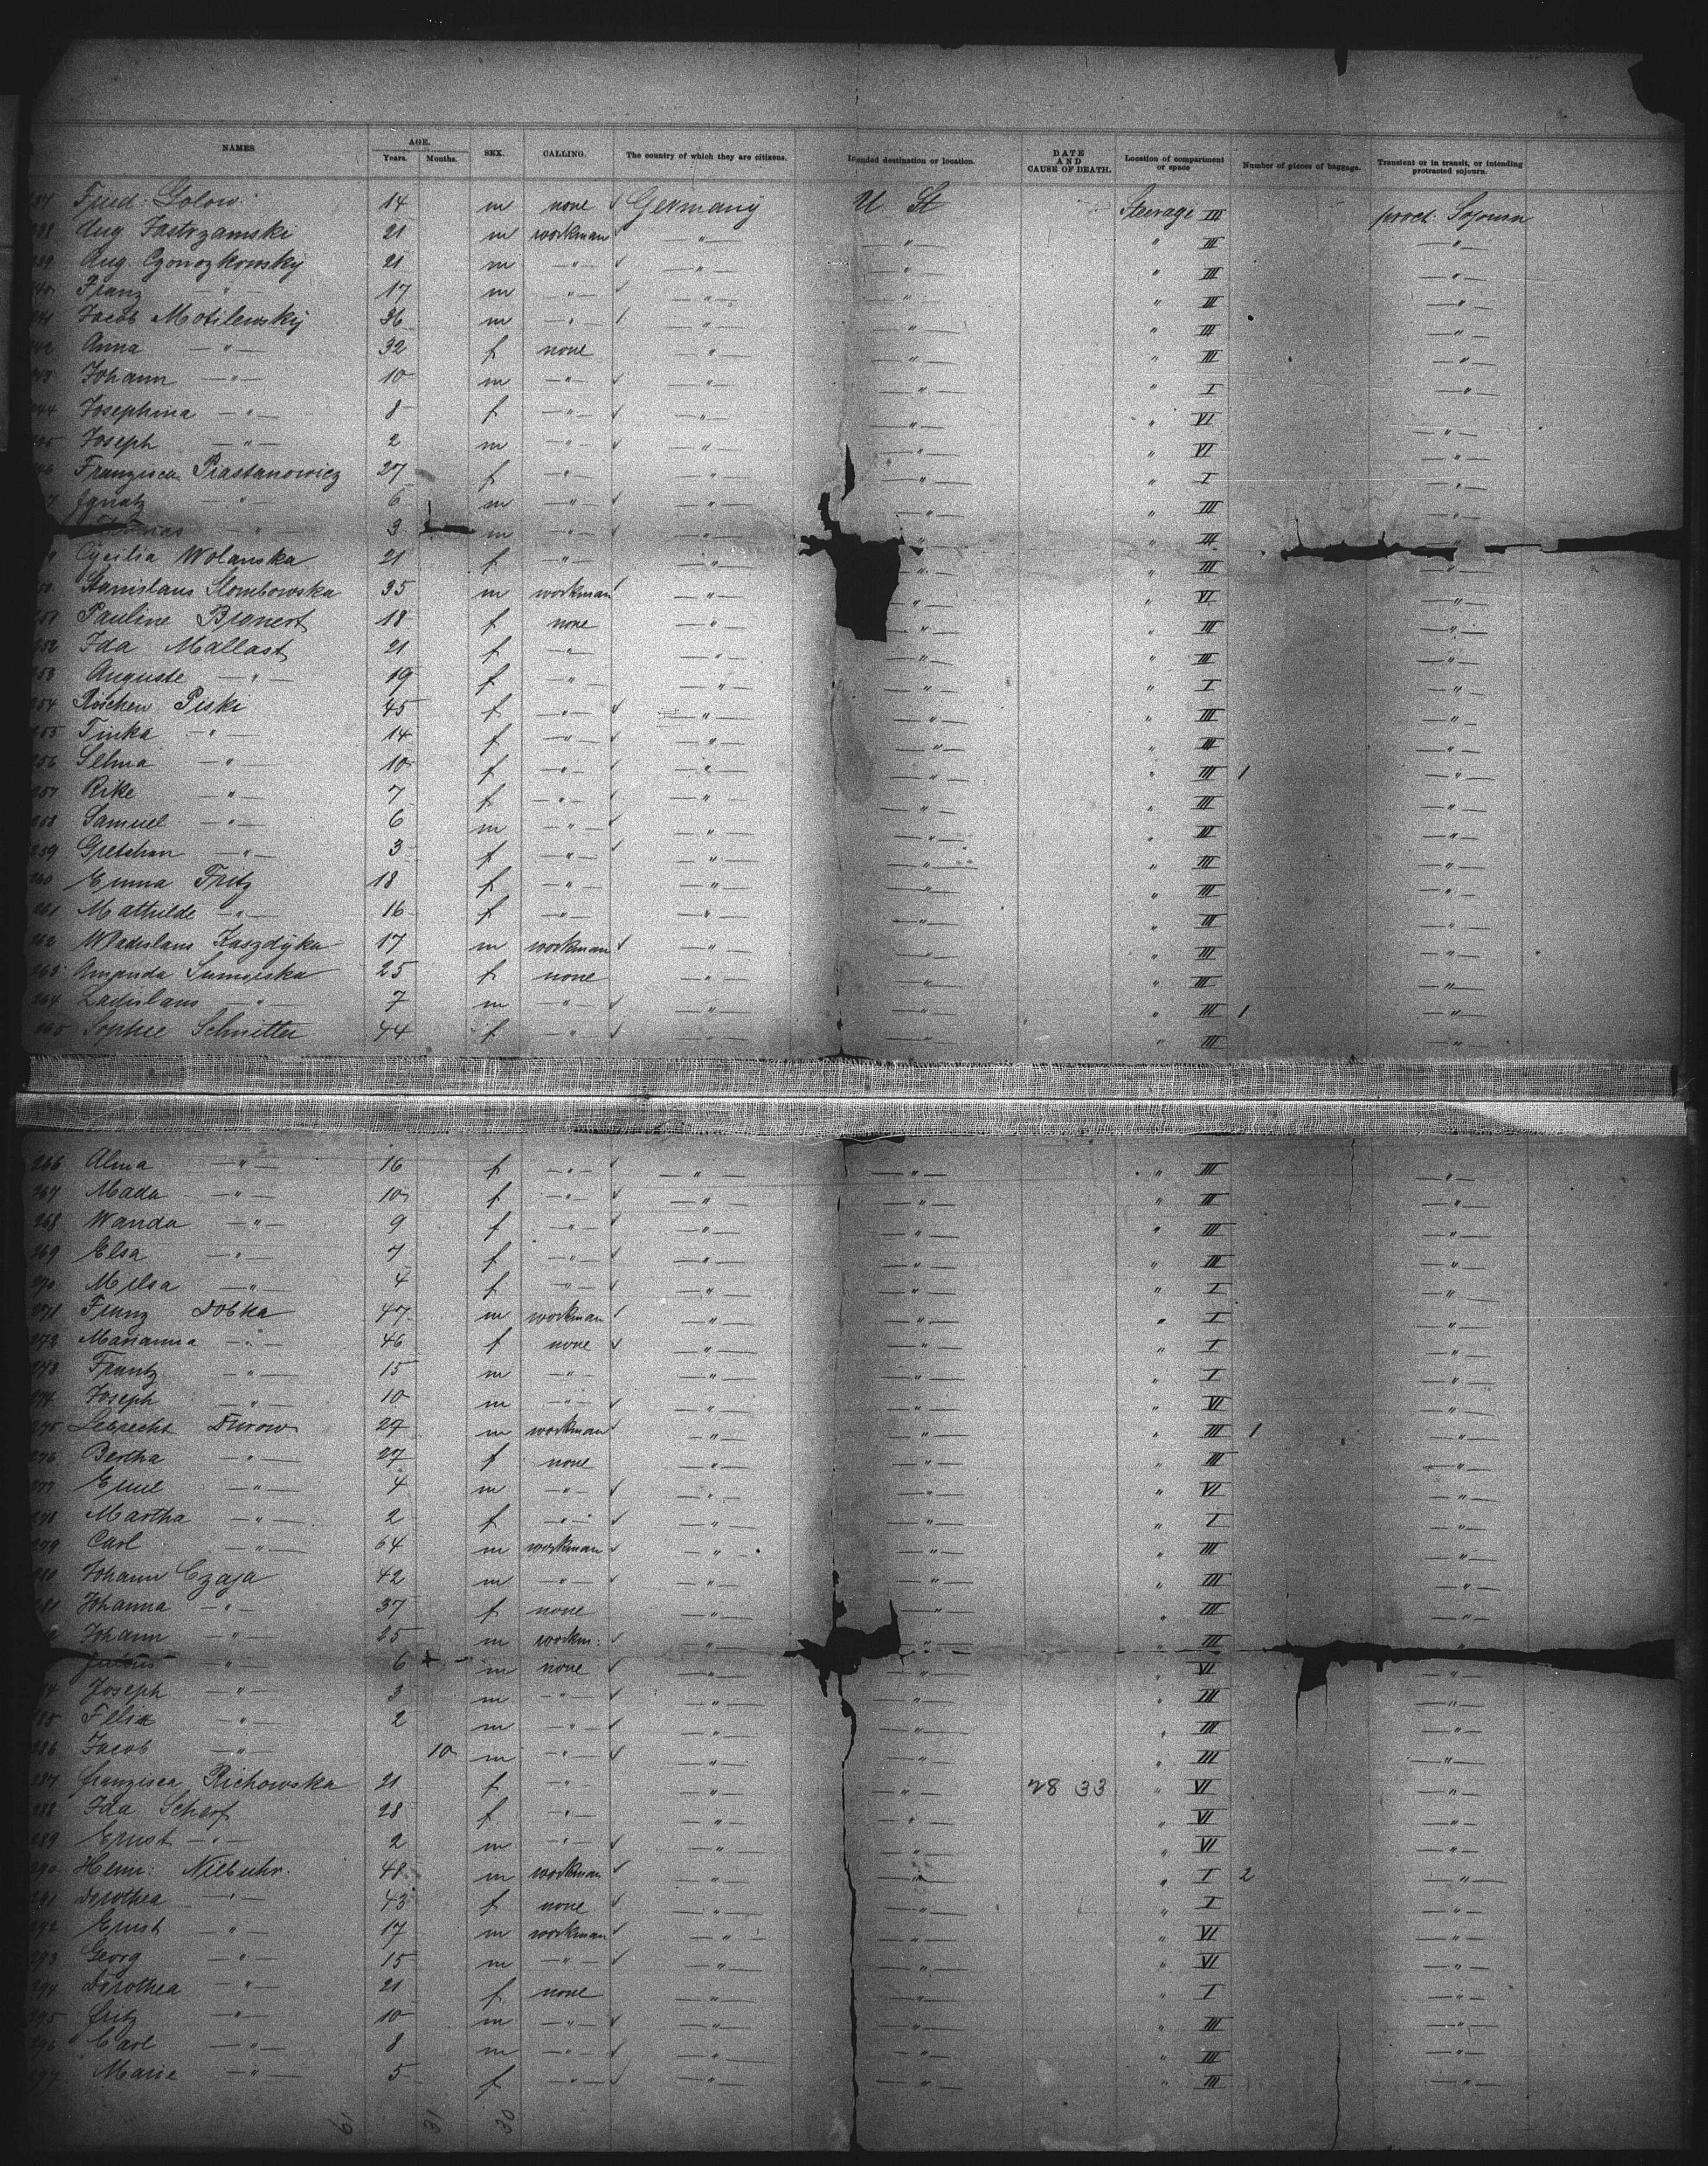 NAMES AGE. Years. Months. SEX. CALLING. The country of which they are citizens. Intended destination or location. DATE AND CAUSE OF DEATH. Location of compartment or space Number of pieces of baggage. Transient or in transit, or intending protracted sojourn.
Fried: Golow 14 m none Germany U St Steerage III protr. Sojourn
238 Aug Jastrzamski 21 m workman " " " III "
239 Aug. 21 m " " " " III "
240 Franz " 17 m " " " " III "
241 Jacob Motilewsky 36 m " " " " III "
242 Anna " 32 f none " " " III "
243 Johann " 10 m " " " " I "
244 Josephina " 8 f " " " " VI "
245 Joseph " 2 m " " " " VI "
246 Franzisca Piastanowicz 27 f " " " " I "
7 Ignatz " 6 m " " " " III "
" 3 m " " " " III "
9 Cycilia Wolanska 21 f " " " " III "
250 Stanislaus Slombowska 35 m workman " " " VI "
251 Pauline 18 f none " " " III "
252 Ida Mallast 21 f " " " " III "
253 Auguste " 19 f " " " " I "
254 Röschen Piski 45 f " " " " III "
255 Tinka " 14 f " " " " III "
256 Selma " 10 f " " " " III 1 "
257 Rike " 7 f " " " " III "
258 Samuel " 6 m " " " " III "
259 Gretchen " 3 f " " " " III "
260 Emma Fritz 18 f " " " " III "
261 Mathilde " 16 f " " " " III "
262 Wladislaus Kaszdyka 17 m workman " " " III "
263 Amanda 25 f none " " " III "
264 Ladislaus " 7 m " " " " III 1 "
265 Sophie Schnitter 44 f " " " " III "
266 Alma " 16 f " " " " III "
267 Mada " 10 f " " " " III "
268 Wanda " 9 f " " " " III "
269 Elsa " 7 f " " " " III "
270 Milsa " 4 f " " " " I "
271 Franz Dobka 47 m workman " " " I "
272 Marianna " 46 f none " " " I "
273 Frantz " 15 m " " " " I "
274 Joseph " 10 m " " " " VI "
275 Lebrecht Durow 27 m workman " " " III 1 "
276 Bertha " 27 f none " " " III "
277 Emil " 4 m " " " " VI "
278 Martha " 2 f " " " " I "
279 Carl " 64 m workman " " " III "
280 Johann Czaja 42 m " " " " III "
281 Johanna " 37 f none " " " III "
Johann " 25 m workm: " " " III "
Julius " 6 m none " " " VI "
84 Joseph " 3 m " " " " III "
285 Felix " 2 m " " " " III "
286 Jacob " 10 m " " " " III "
287 Franzisca Richowska 21 f " " " 28 33 " VI "
288 Ida Scherf 28 f " " " " VI "
289 Ernst " 2 m " " " " VI "
290 Heinr: Niebuhr. 48 m workman " " " I 2 "
291 Dorothea " 43 f none " " " I "
292 Ernst " 17 m workman " " " VI "
293 Georg " 15 m " " " " VI "
294 Dorothea " 21 f none " " " I "
295 Fritz " 10 m " " " " III "
296 Carl " 8 m " " " " III "
297 Marie " 5 f " " " " III "
61 31 30